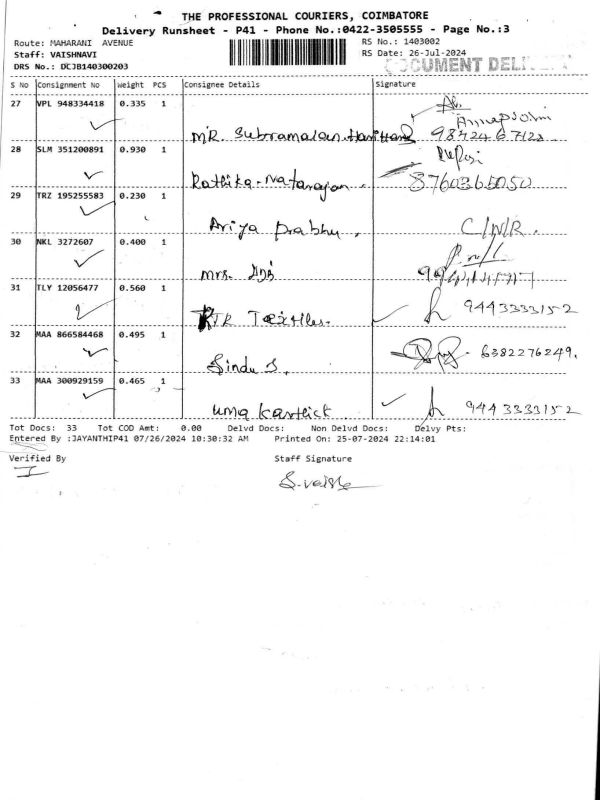 THE PROFESSIONAL COURIERS, COIMBATORE
Delivery Runsheet - P41 - Phone No.:0422-3505555 - Page No.:3
Route: MAHARANI AVENUE
RS No.: 1403002
Staff: VAISHNAVI
RS Date: 26-Jul-2024
DRS No.: DCJB140300203
DOCUMENT DELI
S No Consignment No Weight PCS Consignee Details Signature
27 VPL 948334418 0.335 1
MR. Subramalan
28 SLM 351200891 0.930 1
Rathika-Natarajan.
8760365050
29 TRZ 195255583 0.230 1
Ariya Prabhu. C/N/R.
30 NKL 3272607 0.400 1
mrs.
31 TLY 12056477 0.560 1
Textiles. 9443333152
32 MAA 866584468 0.495 1
Sindu S. 6382276249.
33 MAA 300929159 0.465 1
uma Karthick 9443333152
Tot Docs: 33 Tot COD Amt: 0.00 Delvd Docs: Non Delvd Docs: Delvy Pts:
Entered By :JAYANTHIP41 07/26/2024 10:30:32 AM Printed On: 25-07-2024 22:14:01
Verified By Staff Signature